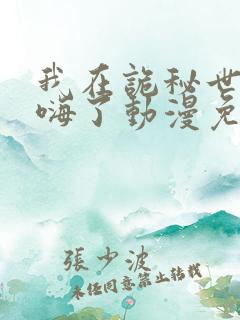 我在詭秘世
嗨了動漫免
張少波
未经同意禁止转载